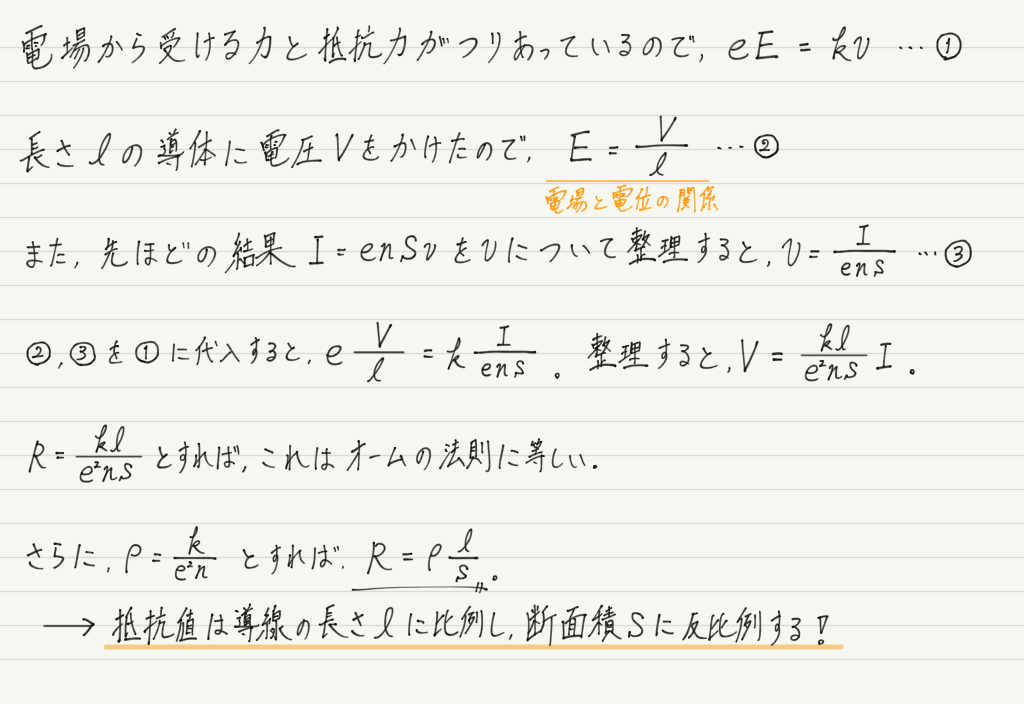 電場から受ける力と抵抗力がつりあっているので, eE = kv … ①
長さ l の導体に電圧 V をかけたので, E = V/l … ②
電場と電位の関係
また, 先ほどの結果 I = enSv を v について整理すると, v = I/enS … ③
②, ③ を ① に代入すると, e V/l = k I/enS 。 整理すると, V = kl/e²nS I 。
R = kl/e²nS とすれば, これは オームの法則に等しい.
さらに, ρ = k/e²n とすれば, R = ρ l/S 。
→ 抵抗値は導線の長さ l に比例し, 断面積 S に反比例する!